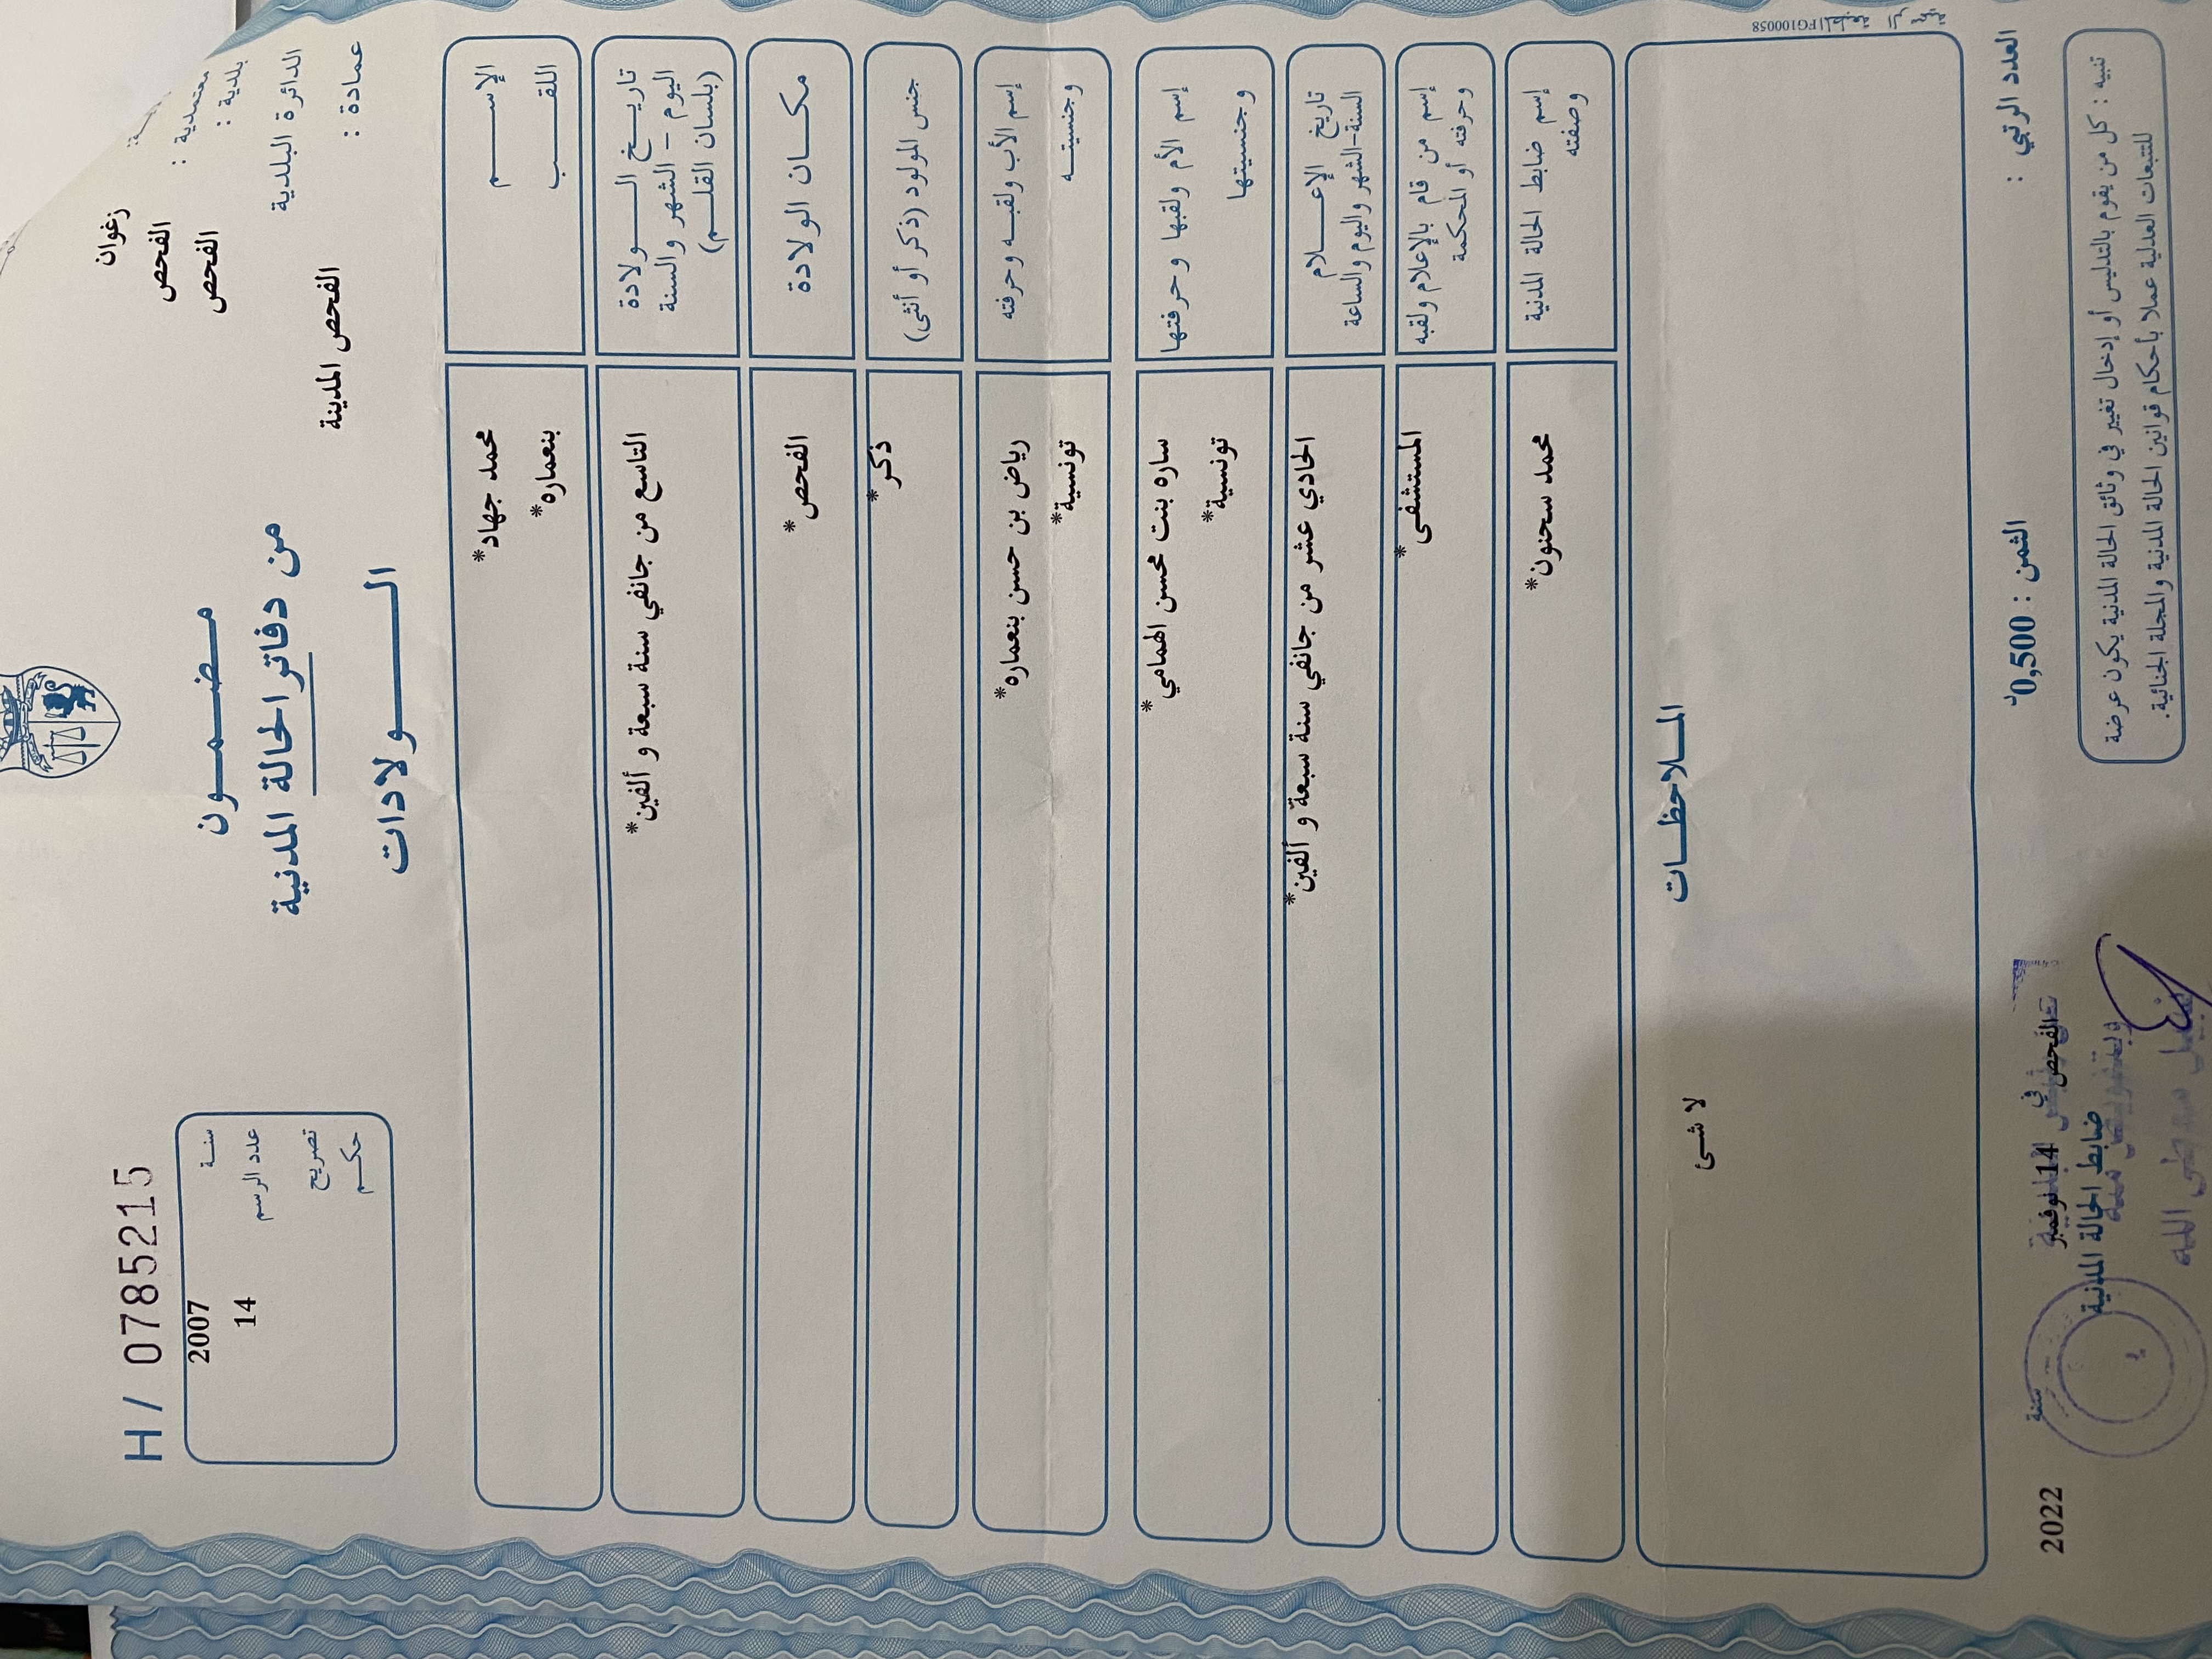 زغوان
معتمدية : الفحص
بلدية : الفحص
الدائرة البلدية
عمادة : الفحص المدينة
مضمون
من دفاتر الحالة المدنية
الولادات
H / 0785215
سنة 2007
عدد الرسم 14
تصريح
حكم
الإسم محمد جهاد*
اللقب بنعماره*
تاريخ الولادة
اليوم - الشهر والسنة
(بلسان القلم)
التاسع من جانفي سنة سبعة و ألفين*
مكان الولادة الفحص*
جنس المولود (ذكر أو أنثى) ذكر*
إسم الأب ولقبه وحرفته رياض بن حسن بنعماره*
وجنسيته تونسية*
إسم الأم ولقبها وحرفتها ساره بنت محسن الهمامي*
وجنسيتها تونسية*
تاريخ الإعلام
السنة-الشهر واليوم والساعة
الحادي عشر من جانفي سنة سبعة و ألفين*
إسم من قام بالإعلام ولقبه
وحرفته أو المحكمة
المستشفى*
إسم ضابط الحالة المدنية
وصفته
محمد سحنون*
الملاحظات
لا شئ
المطبعة الرسمية FG100058
العدد الرتبي :
الثمن : 0,500د
الفحص في 14 نوفمبر سنة 2022
ضابط الحالة المدنية
تنبيه : كل من يقوم بالتدليس أو إدخال تغيير في وثائق الحالة المدنية يكون عرضة
للتتبعات العدلية عملا بأحكام قوانين الحالة المدنية والمجلة الجنائية.